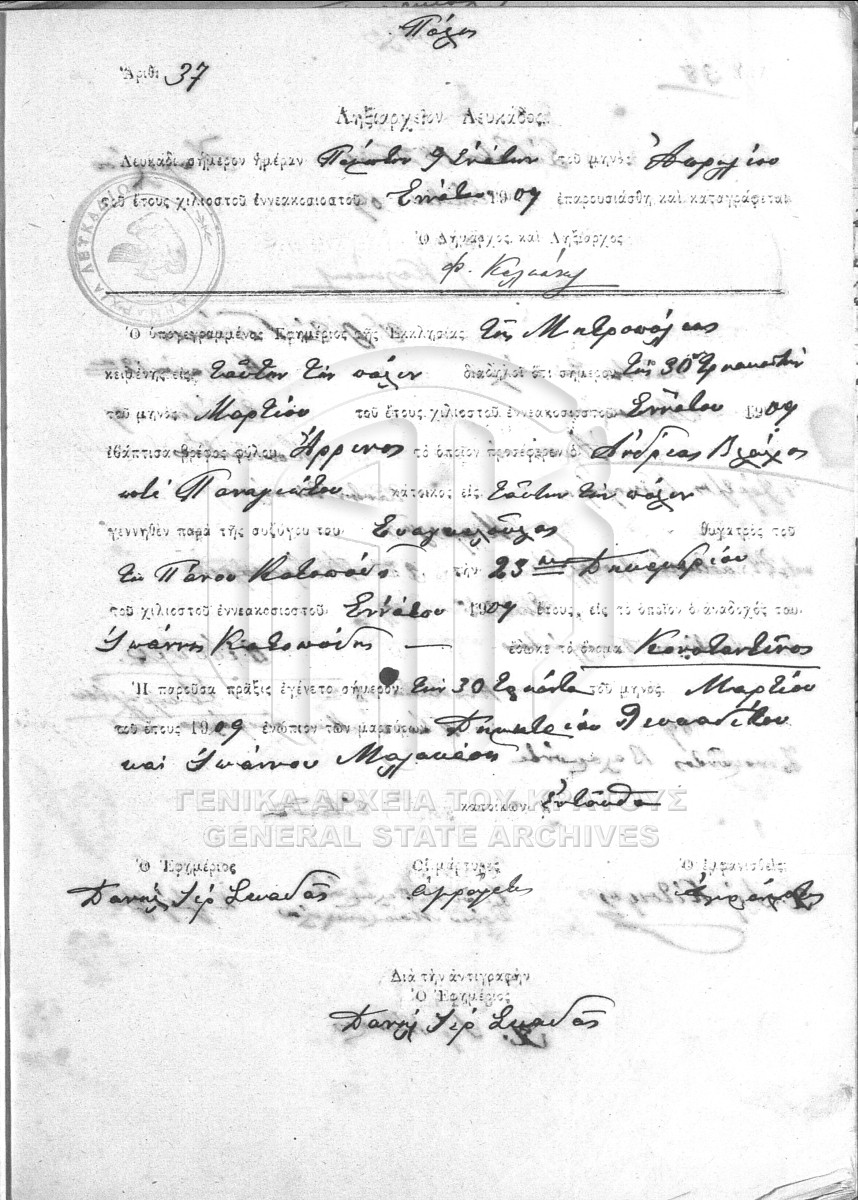 Πόλις
Ἀριθ. 37
Ληξιαρχεῖον Λευκάδος
Λευκάδι σήμερον ἡμέραν Πέμπτην 9 Ἐνάτην τοῦ μηνὸς Ἀπριλίου
τοῦ ἔτους χιλιοστοῦ ἐννεακοσιοστοῦ Ἐννάτου 1909 ἐπαρουσιάσθη καὶ καταγράφεται
Ὁ Δήμαρχος καὶ Ληξίαρχος
Φ.
ΔΗΜΑΡΧΙΑ ΛΕΥΚΑΔΙΩΝ
Ὁ ὑπογεγραμμένος Ἐφημέριος τῆς Ἐκκλησίας τῆς Μητροπόλεως
κειθένης εἰς ταύτην τὴν πόλιν διαδηλοῖ ὅτι σήμερον τὴν 30 Τριακοστὴν
τοῦ μηνὸς Μαρτίου τοῦ ἔτους χιλιοστοῦ ἐννεακοσιοστοῦ Ἐννάτου 1909
ἐβάπτισα βρέφος φύλου Ἄρρενος τὸ ὁποῖον προσέφερεν ὁ Ἀνδρέας Βλάχος
ποτὲ Παναγιώτου κάτοικος εἰς ταύτην τὴν πόλιν
γεννηθὲν παρὰ τῆς συζύγου του Εὐαγγελούλας θυγατρὸς τοῦ
τοῦ Πάνου Κατωπόδη τὴν 23ην Δεκεμβρίου
τοῦ χιλιοστοῦ ἐννεακοσιοστοῦ Ἐννάτου 1909 ἔτους, εἰς τὸ ὁποῖον ὁ ἀνάδοχός του
Ἰωάννης Κατωπόδης — ἔδωκε τὸ ὄνομα Κωνσταντῖνος
Ἡ παροῦσα πρᾶξις ἐγένετο σήμερον τὴν 30 Τριάντα τοῦ μηνὸς Μαρτίου
τοῦ ἔτους 1909 ἐνώπιον τῶν μαρτύρων Δημητρίου
καὶ Ἰωάννου Μαλακάση
κατοίκων ἐνταῦθα
ΓΕΝΙΚΑ ΑΡΧΕΙΑ ΤΟΥ ΚΡΑΤΟΥΣ
GENERAL STATE ARCHIVES
Ὁ Ἐφημέριος Οἱ μάρτυρες Ὁ ἐμφανισθείς
Δανιὴλ Ἱερ. Σκιαδᾶς ἀγράμματοι
Διὰ τὴν ἀντιγραφὴν
Ὁ Ἐφημέριος
Δανιὴλ Ἱερ. Σκιαδᾶς